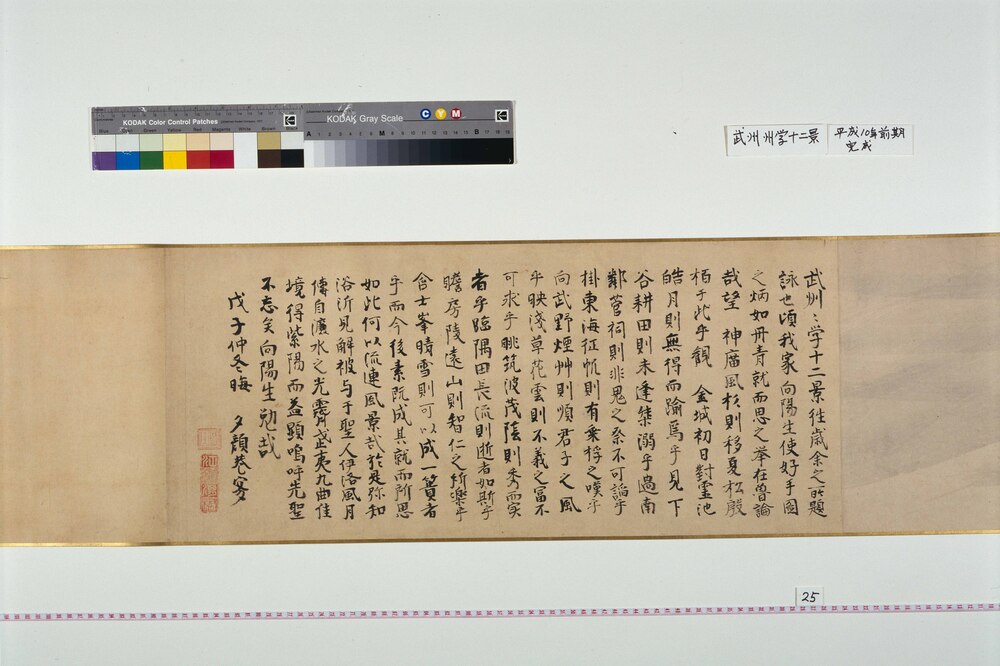 KODAK Color Control Patches
Blue Cyan Green Yellow Red Magenta White Brown Black
KODAK Gray Scale
C Y M
Kodak
A 1 2 3 4 5 6 M 8 9 10 11 12 13 14 15 B 17 18 19
武州州学十二景
平成10年前期
完成
武州〻学十二景往歳余之所題
詠也頃我家向陽生使好手図
之炳如丹青就而思之挙在魯論
哉望神廟風松則移夏松殷
栢于此乎観金城初日対霊池
皓月則無得而踰焉乎見下
谷耕田則未逢桀溺乎過南
鄰菅祠則非鬼之祭不可諂乎
掛東海征帆則有乗桴之嘆乎
向武野煙艸則順君子之風
乎映浅草花雲則不義之冨不
可求乎眺筑波茂陰則秀而実
者乎臨隅田長流則逝者如斯乎
瞻房陵遠山則智仁之所楽乎
含士峯晴雪則可以成一簣者
乎而今後素既成其就而所思
如此何以流連風景哉於是弥知
浴沂見解被与于聖人伊洛風月
傳自濂水之光霽武夷九曲佳
境得紫陽而益顕嗚呼先聖
不忘矣向陽生勉哉
戊子仲冬晦 夕顔巷叟
25